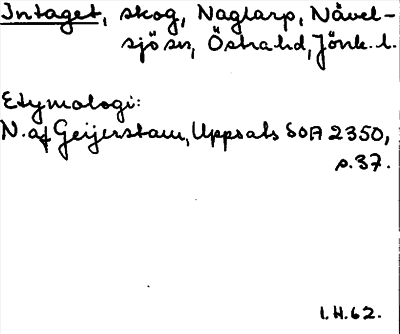 Intaget, skog, Naglarp, Nävel-
sjö sn, Östra hd, Jönk. l.
Etymologi:
N. af Geijerstam, Uppsats SOA 2350,
s. 37.
I.H. 62.